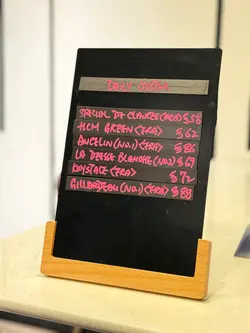 SPECIAL DE CLAIRES (FRA) $58
HCM GREEN (FRA) $62
ANCELIN (NO.1) (FRA) $85
LA DEESSE BLANCHE (NO.2) $69
KRYSTALE (FRA) $72
GILLARDEAU (NO.1) (FRA) $88